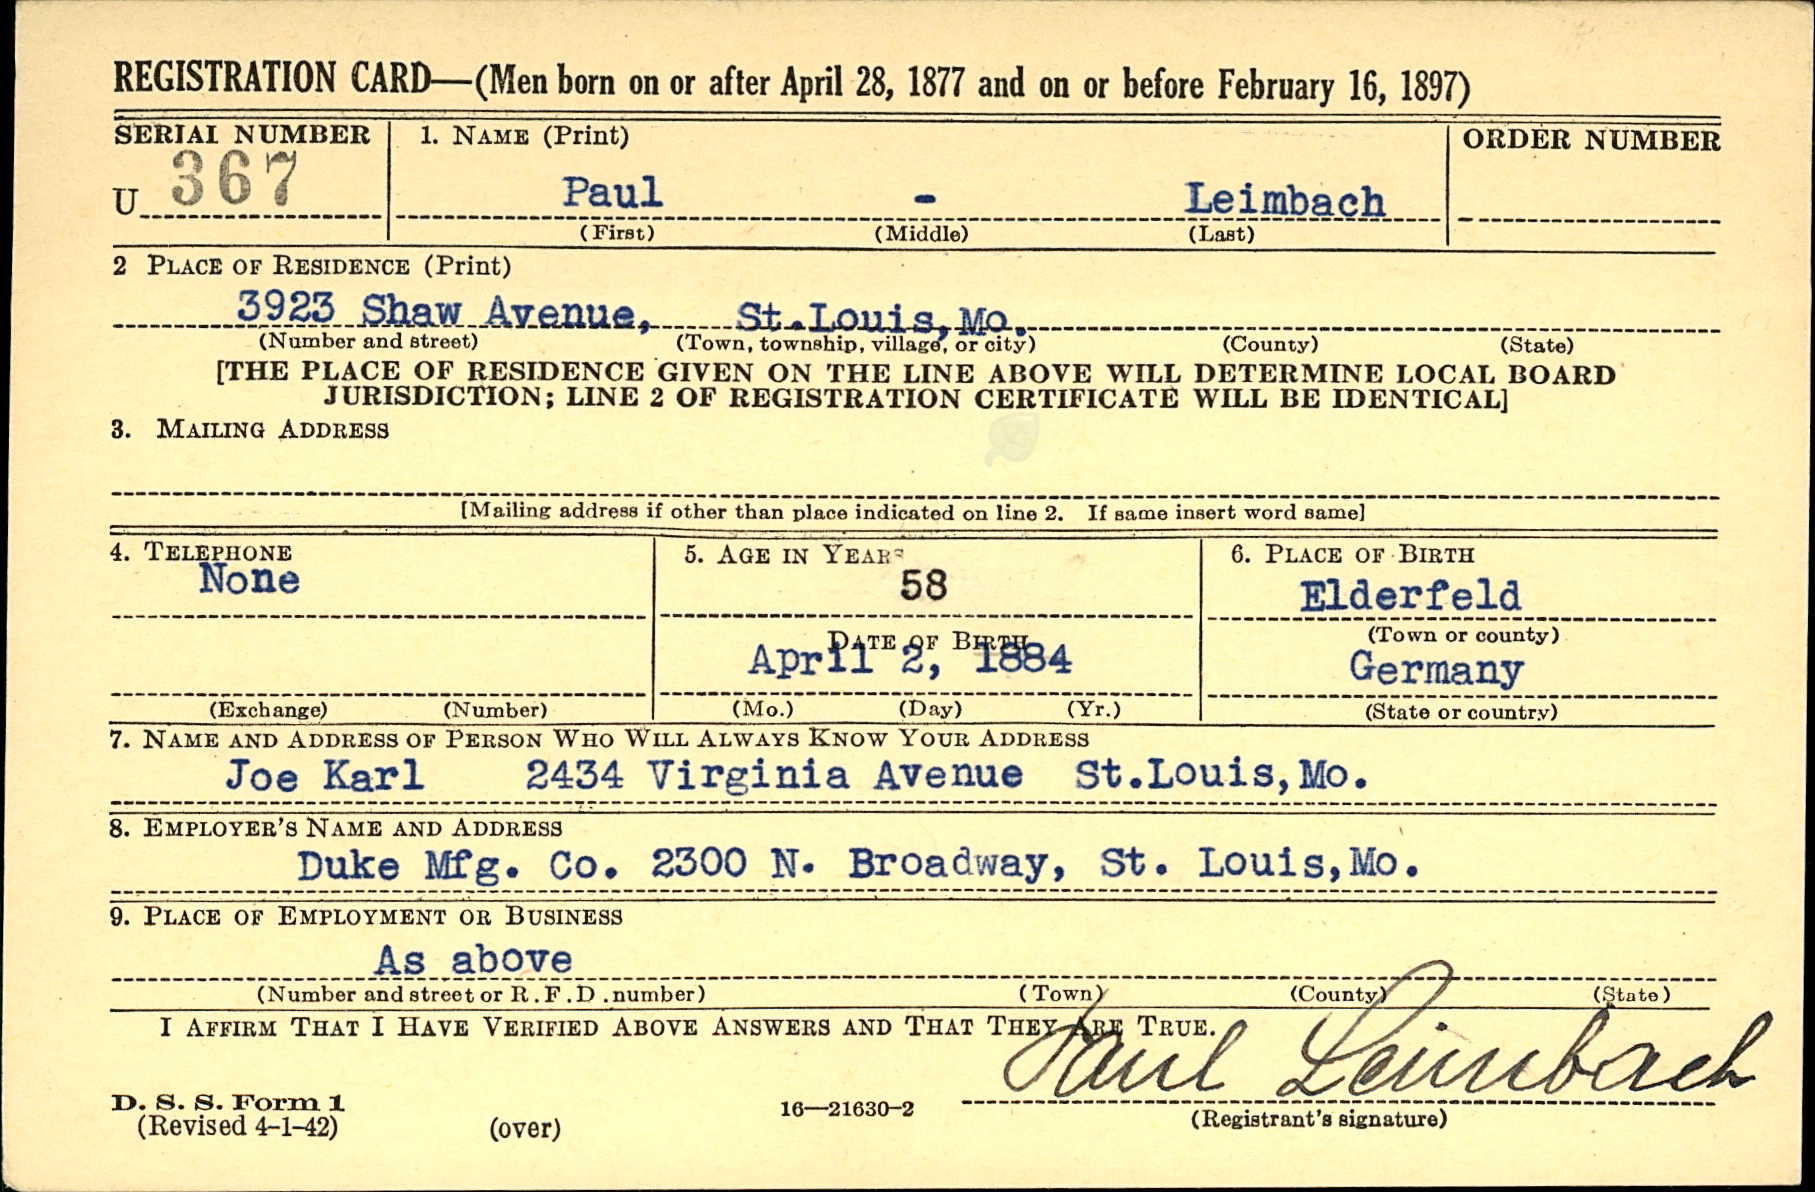 REGISTRATION CARD—(Men born on or after April 28, 1877 and on or before February 16, 1897)
SERIAL NUMBER
1. NAME (Print)
ORDER NUMBER
U 367
Paul - Leimbach
(First) (Middle) (Last)
2 PLACE OF RESIDENCE (Print)
3923 Shaw Avenue, St.Louis,Mo.
(Number and street) (Town, township, village, or city) (County) (State)
[THE PLACE OF RESIDENCE GIVEN ON THE LINE ABOVE WILL DETERMINE LOCAL BOARD
JURISDICTION; LINE 2 OF REGISTRATION CERTIFICATE WILL BE IDENTICAL]
3. MAILING ADDRESS
[Mailing address if other than place indicated on line 2. If same insert word same]
4. TELEPHONE
None
(Exchange) (Number)
5. AGE IN YEARS
58
DATE OF BIRTH
April 2, 1884
(Mo.) (Day) (Yr.)
6. PLACE OF BIRTH
Elderfeld
(Town or county)
Germany
(State or country)
7. NAME AND ADDRESS OF PERSON WHO WILL ALWAYS KNOW YOUR ADDRESS
Joe Karl 2434 Virginia Avenue St.Louis,Mo.
8. EMPLOYER'S NAME AND ADDRESS
Duke Mfg. Co. 2300 N. Broadway, St. Louis,Mo.
9. PLACE OF EMPLOYMENT OR BUSINESS
As above
(Number and street or R.F.D. number) (Town) (County) (State)
I AFFIRM THAT I HAVE VERIFIED ABOVE ANSWERS AND THAT THEY ARE TRUE.
Paul Leimbach
D. S. S. Form 1
(Revised 4-1-42) (over) 16—21630-2 (Registrant's signature)